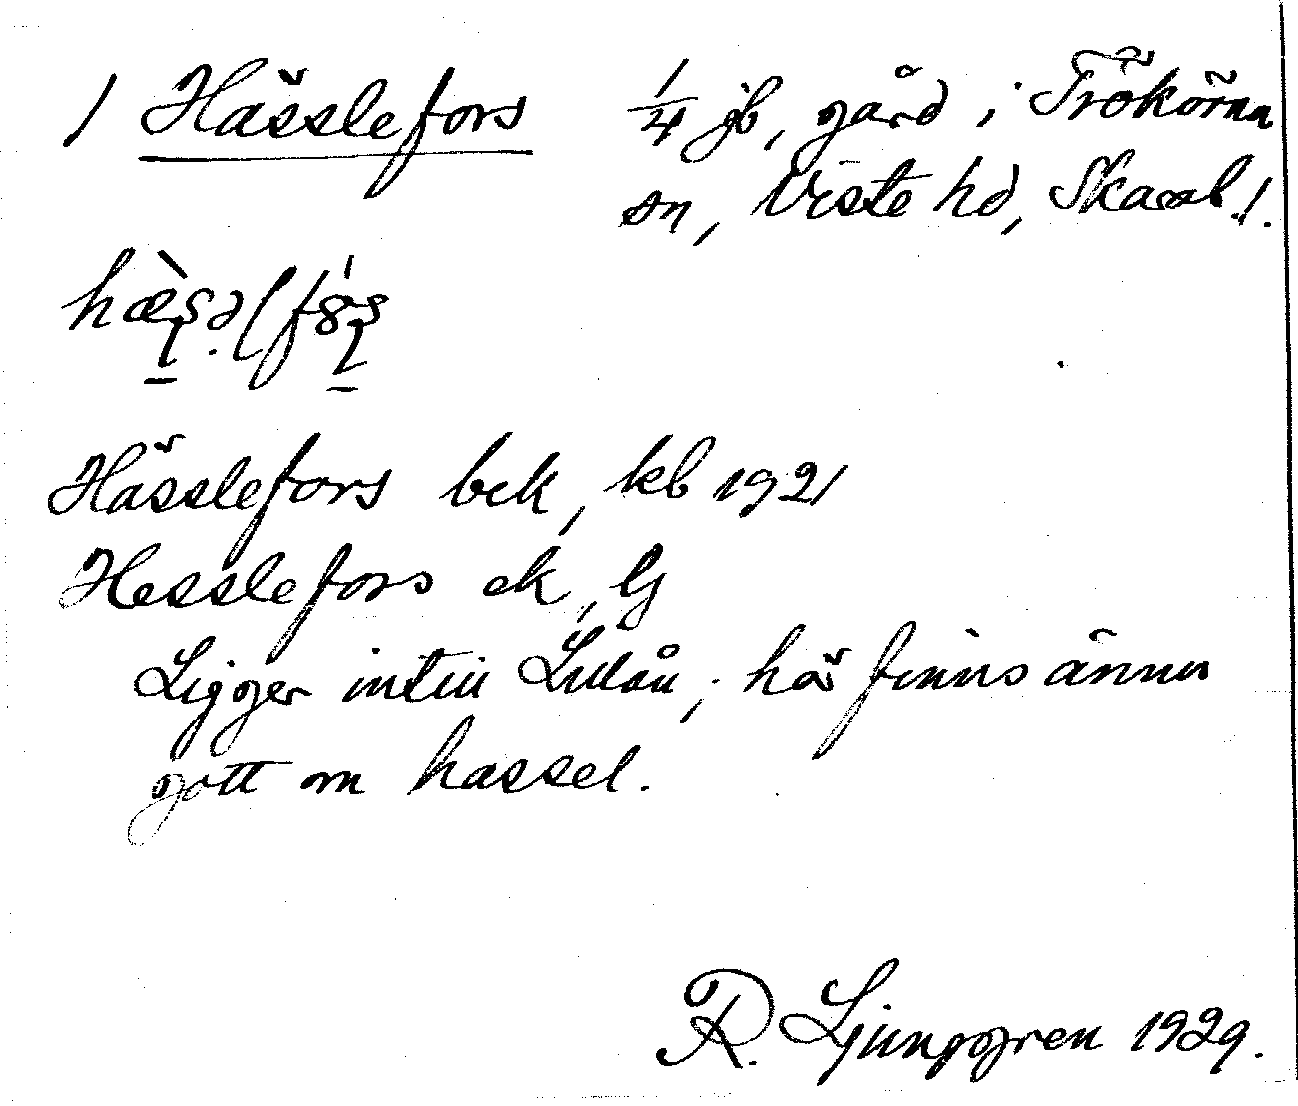 1 Hässlefors 1/4 jb, gård i Trökörna
sn, Viste hd, Skarab. l.
Hässlefors bek, kb 1921
Hesslefors ek, Lj
Ligger intill Lidån; här finns ännu
gott om hassel.
R. Ljunggren 1929.